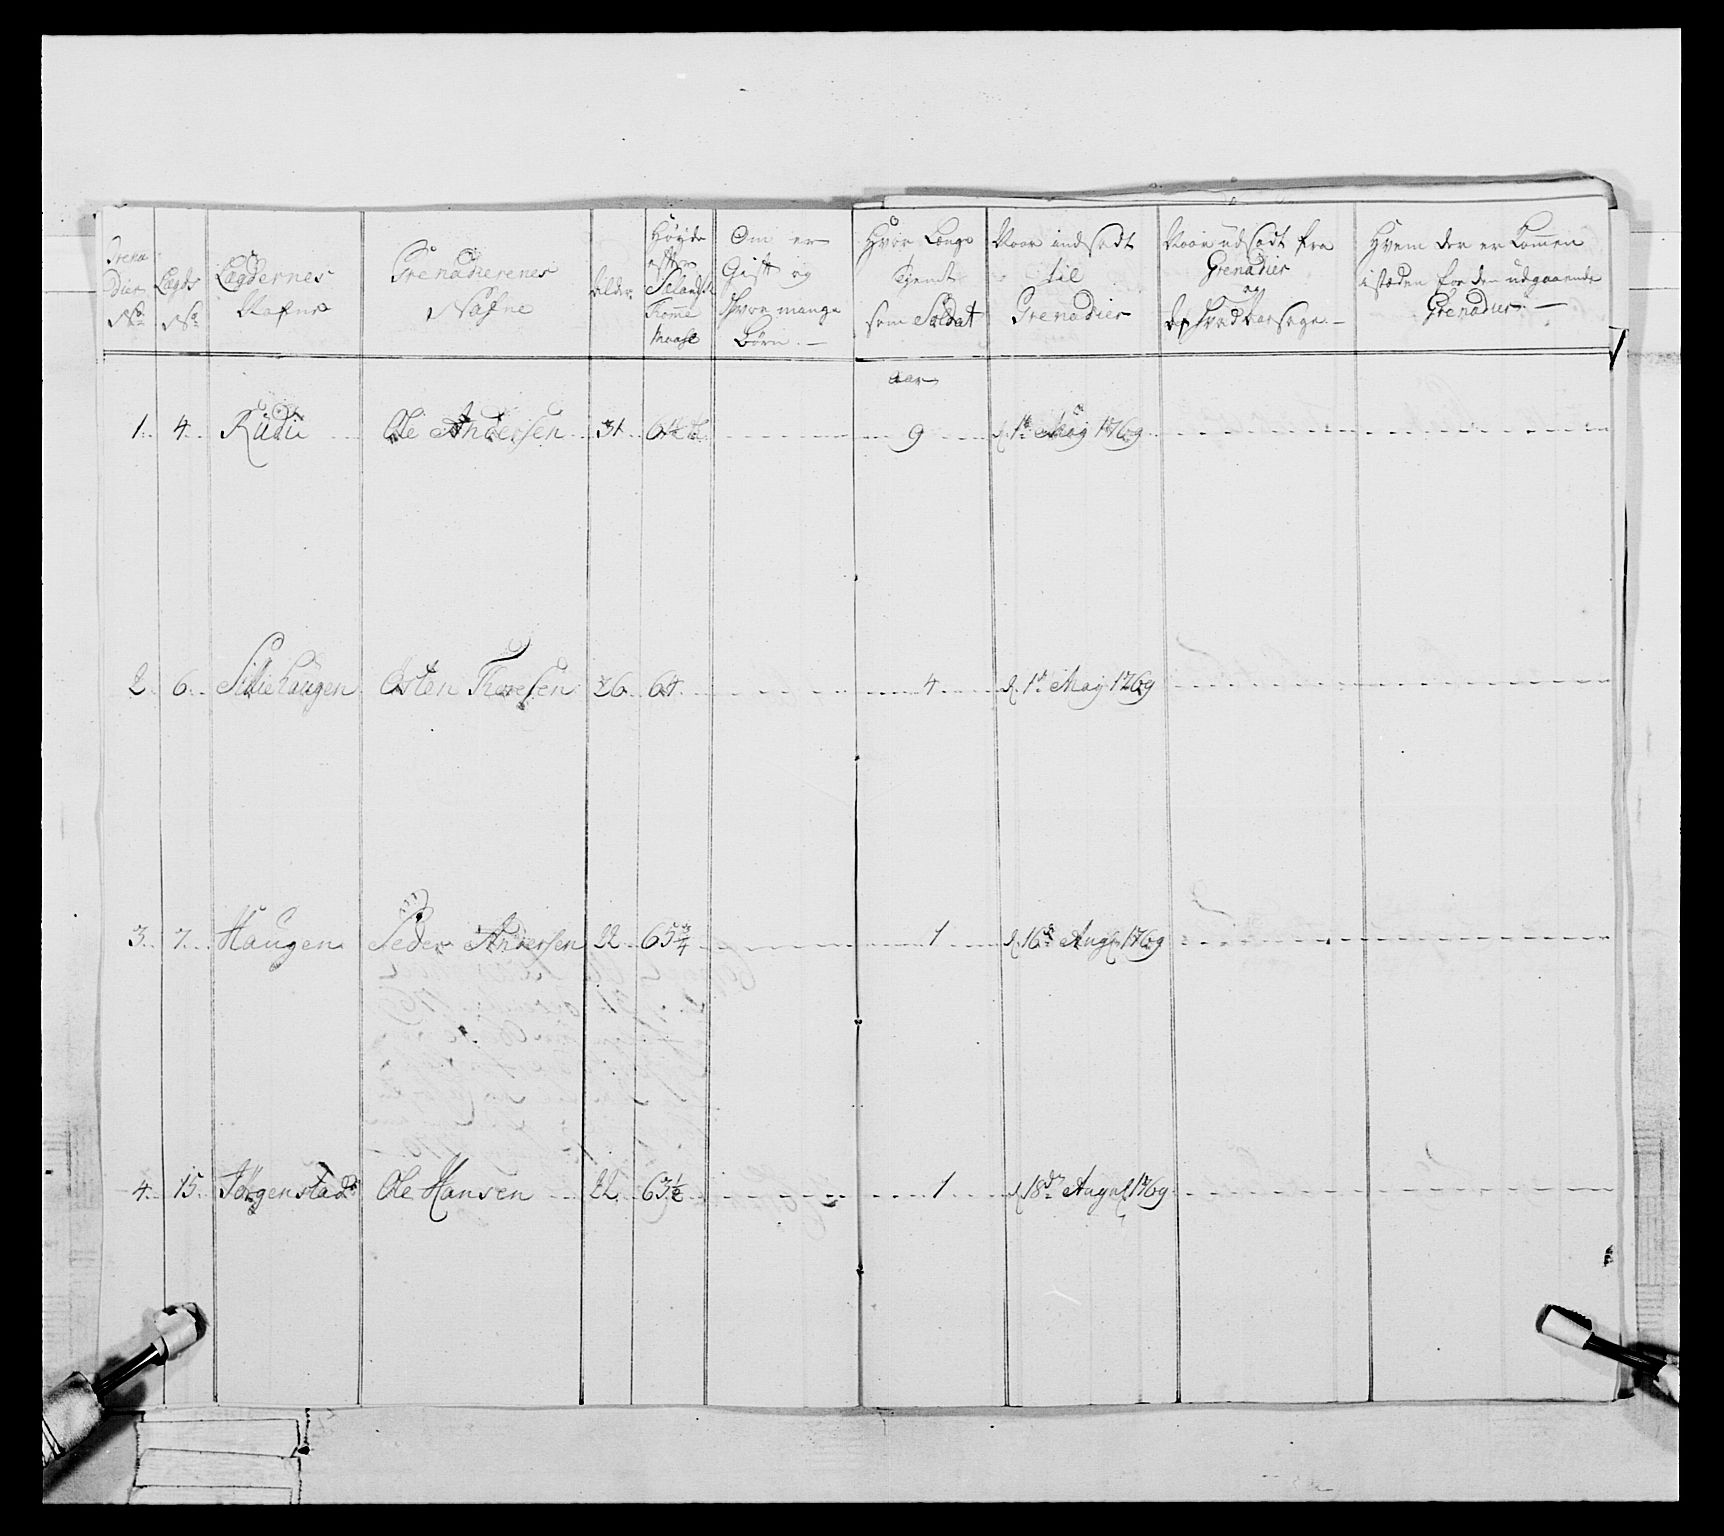 Grena
Dier
No
Lægds
No
Lægdernes
Nafne
Grenadierenes
Nafne
Alder
Høyde
efter
Selands
Tomme
Maal
Om er
Gift og
hvor mange
Børn. —
Hvor Længe
Tjent
som Soldat
Naar indsadt
til
Grenadier
Naar udsadt fra
Grenadier
og
af hvad Aarsage. —
Hvem der er kommen
i stæden for den udgaaende
Grenadier. —
aar
1. 4. Rudii Ole Andersen 31 64 1/2 9 d. 1t May 1769
2. 6. Silliehaugen Østen Thoresen 26 64 4 d. 1t May 1769
3. 7. Haugen Peder Andersen 22 65 3/4 1 d. 16d Aug 1769
4. 15. Jørgenstad Ole Hansen 22 63 1/2 1 d. 18de Augl 1769